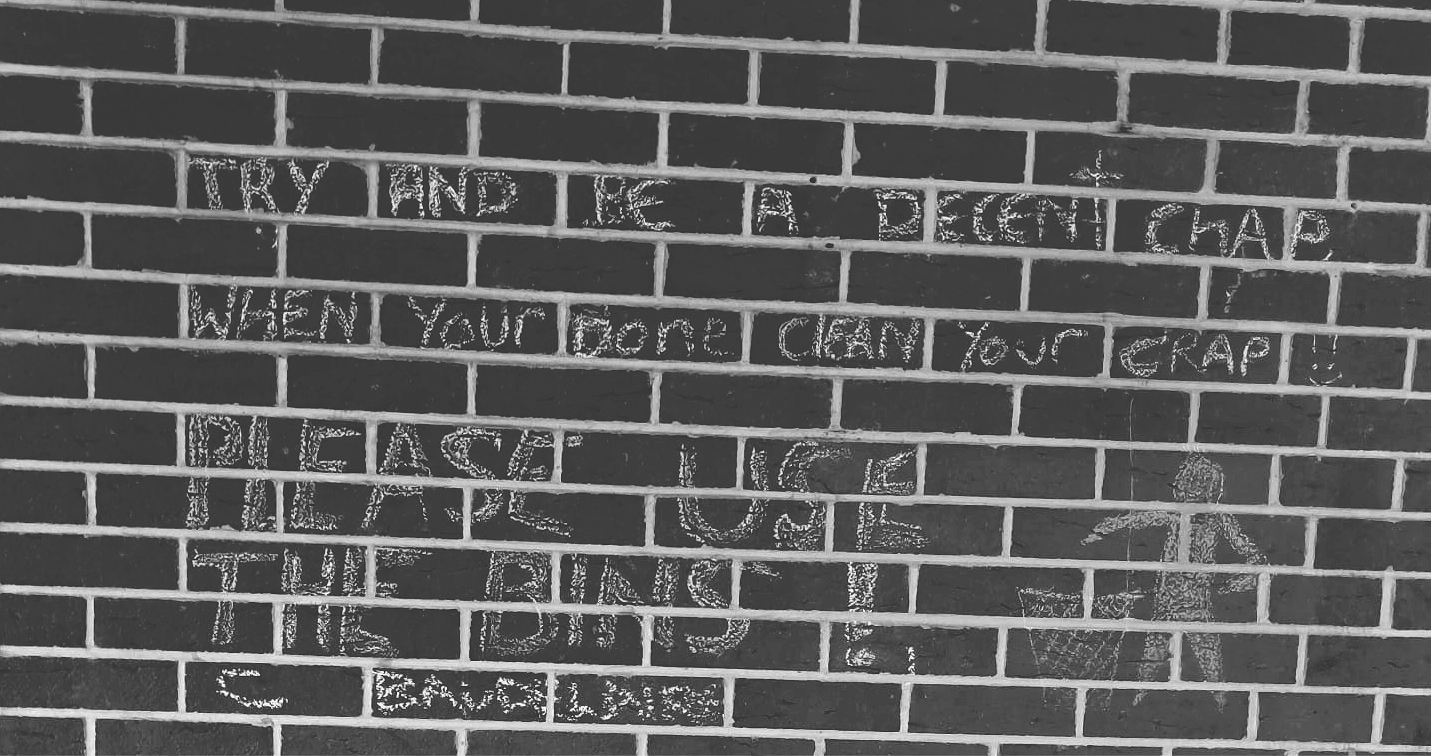 TRY AND BE A DECENT CHAP
WHEN Your Done CLEAN Your CRAP !!
PLEASE USE
THE BINS !